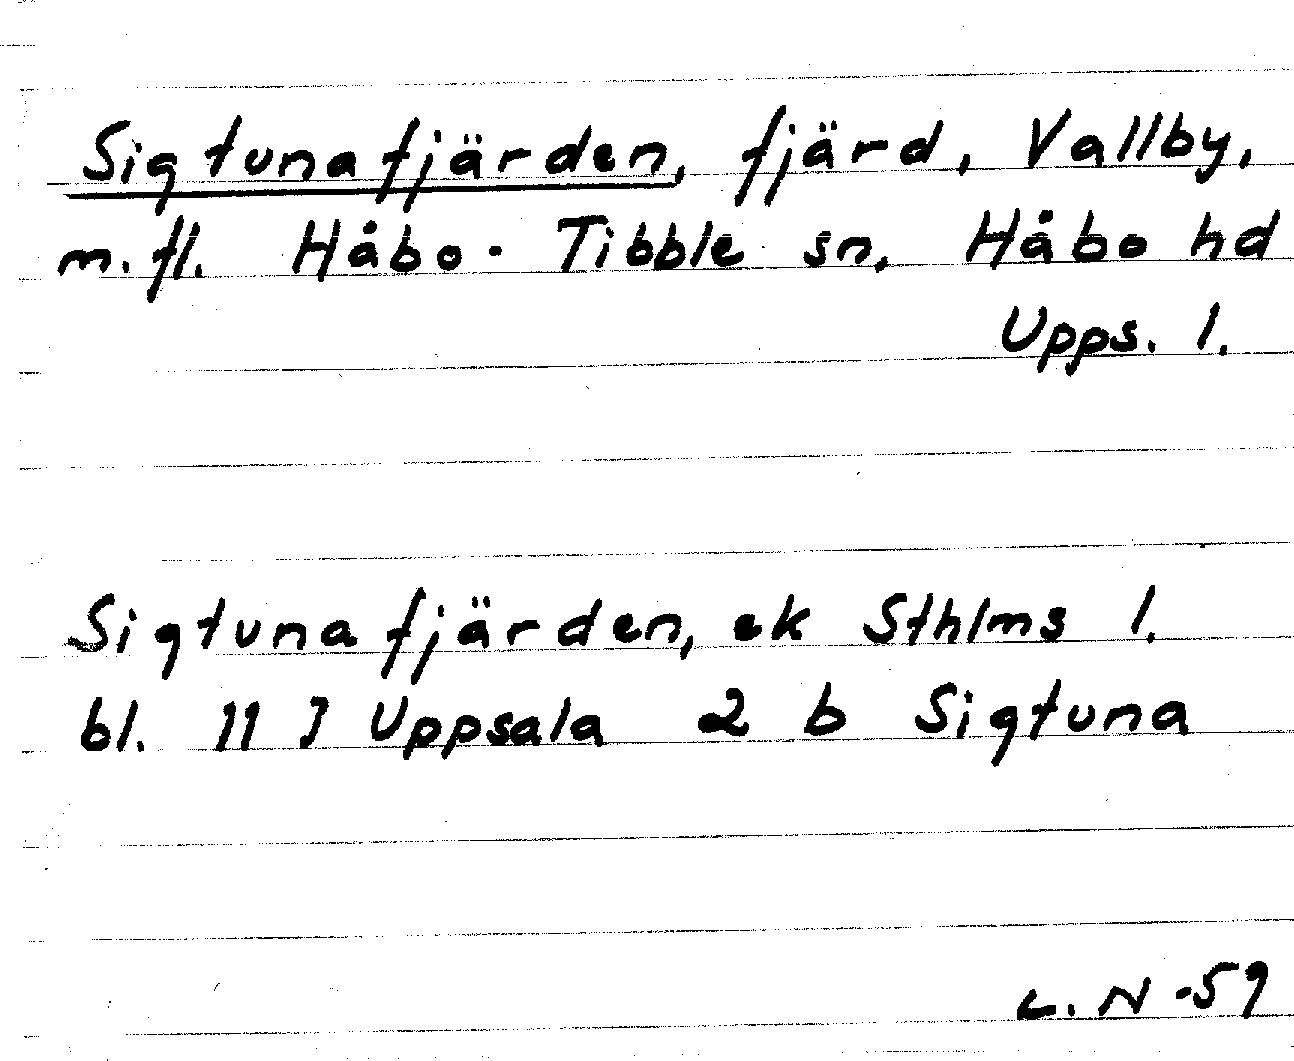 Sigtunafjärden, fjärd, Vallby,
m.fl. Håbo-Tibble sn, Håbo hd
Upps. l.
Sigtunafjärden, ek Sthlms l.
bl. 11 I Uppsala 2 b Sigtuna
L.N -59